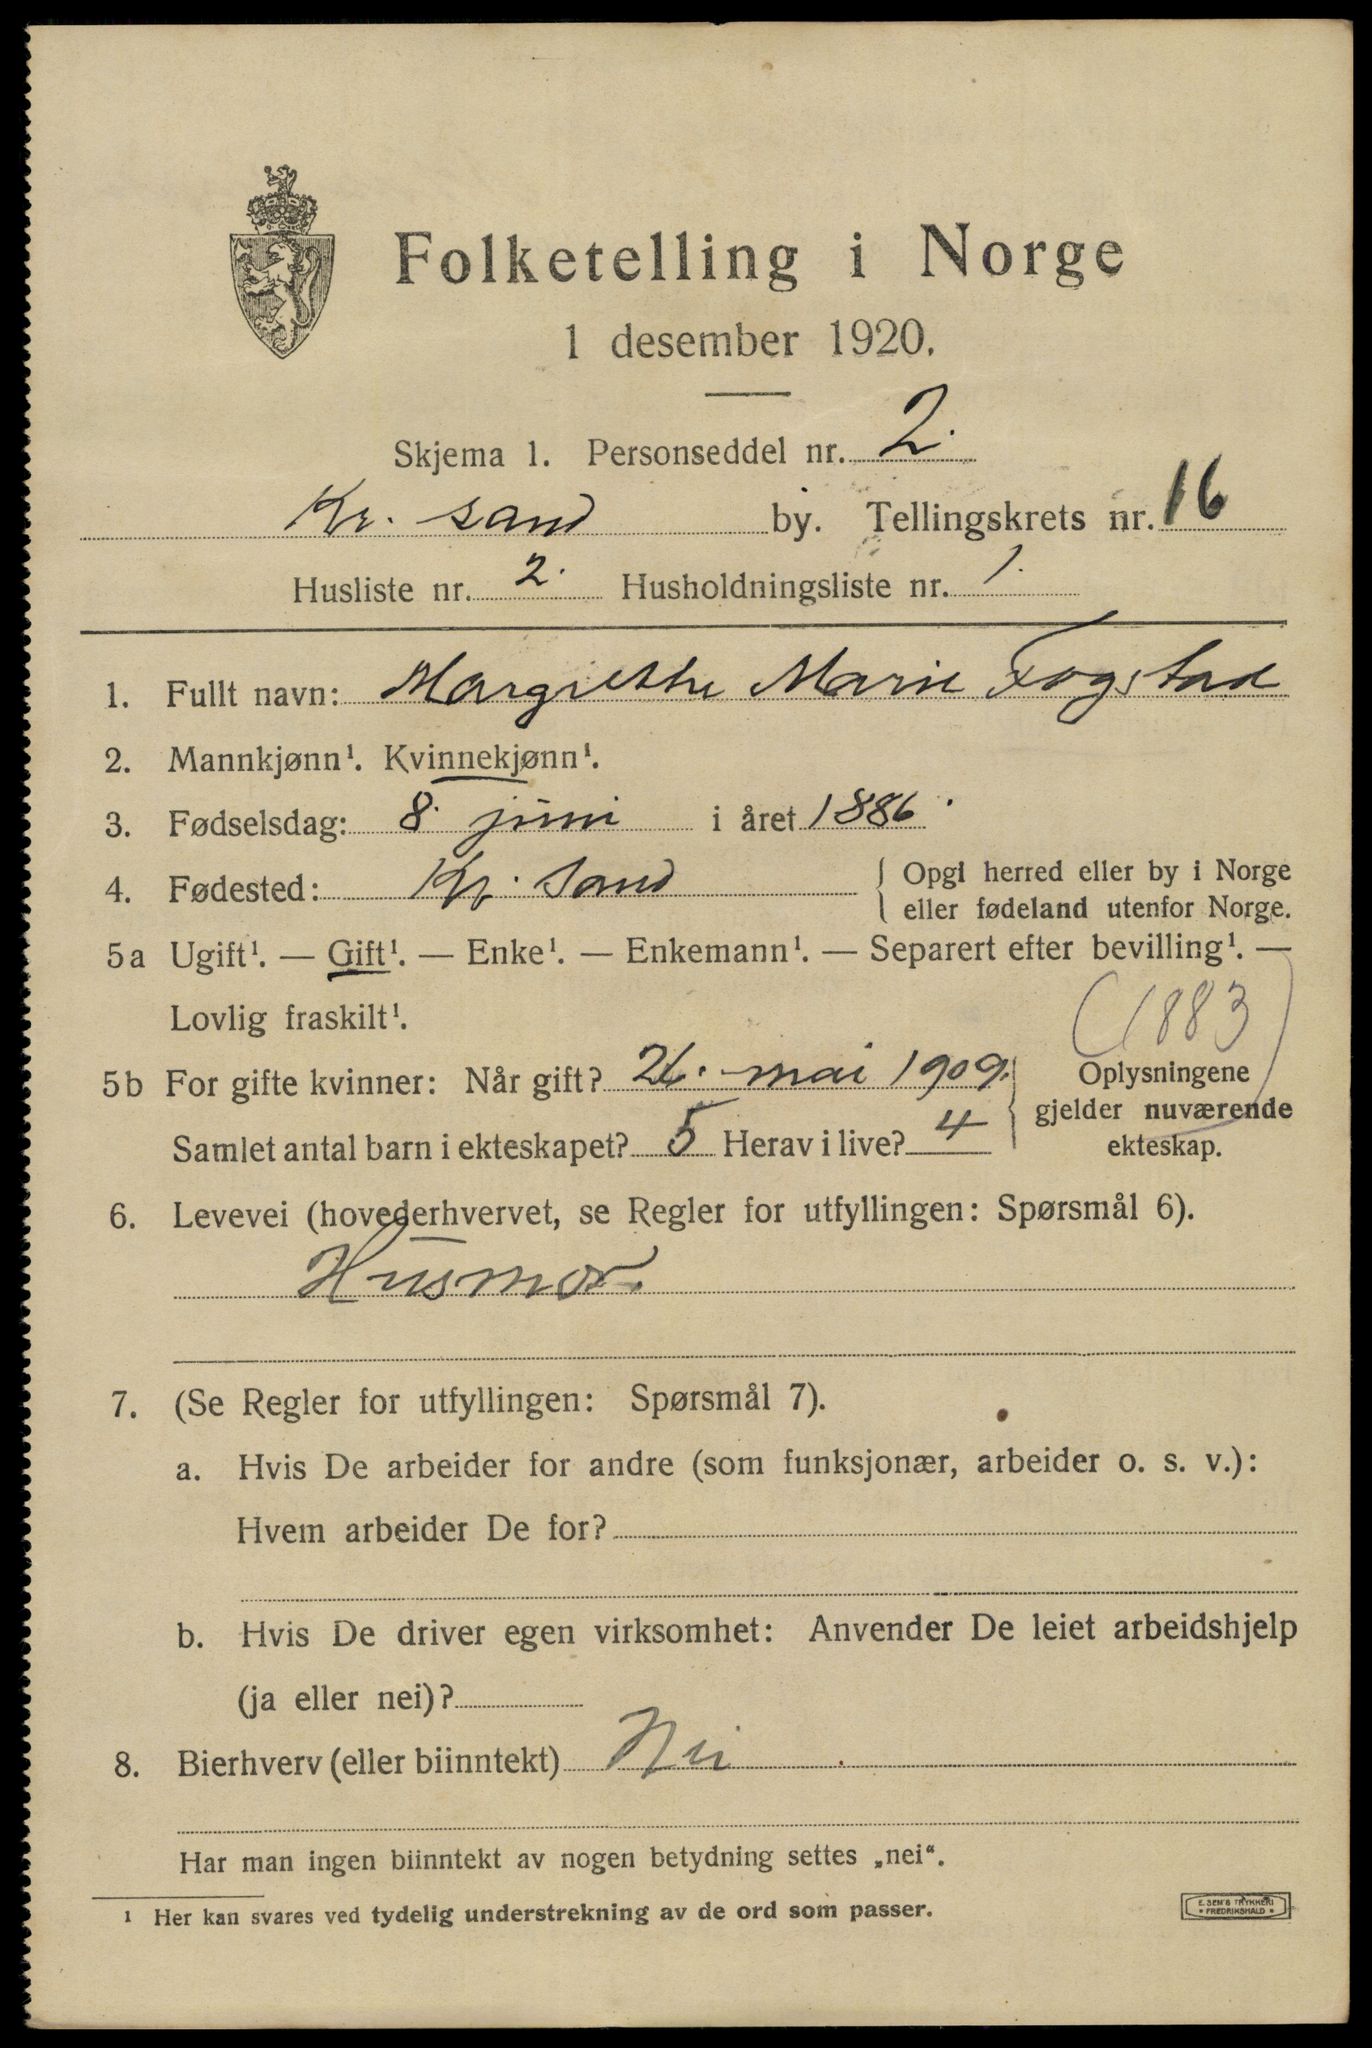 Folketelling i Norge
1 desember 1920.
Skjema 1. Personseddel nr. 2.
Kr. sand by. Tellingskrets nr. 16
Husliste nr. 2. Husholdningsliste nr. 1.
1. Fullt navn: Margrethe Marie Fogstad
2. Mannkjønn¹. Kvinnekjønn¹.
3. Fødselsdag: 8. juni i året 1886.
4. Fødested: Kr. sand { Opgi herred eller by i Norge
eller fødeland utenfor Norge.
5a Ugift¹. — Gift¹. — Enke¹. — Enkemann¹. — Separert efter bevilling¹. —
Lovlig fraskilt¹.
(1883)
5b For gifte kvinner: Når gift? 26. mai 1909. } Oplysningene
gjelder nuværende
ekteskap.
Samlet antal barn i ekteskapet? 5 Herav i live? 4
6. Levevei (hovederhvervet, se Regler for utfyllingen: Spørsmål 6).
Husmor.
7. (Se Regler for utfyllingen: Spørsmål 7).
a. Hvis De arbeider for andre (som funksjonær, arbeider o. s. v.):
Hvem arbeider De for?
b. Hvis De driver egen virksomhet: Anvender De leiet arbeidshjelp
(ja eller nei)?
8. Bierhverv (eller biinntekt) Nei
Har man ingen biinntekt av nogen betydning settes „nei“.
¹ Her kan svares ved tydelig understrekning av de ord som passer.
E. SEM'S TRYKKERI
• FREDRIKSHALD •